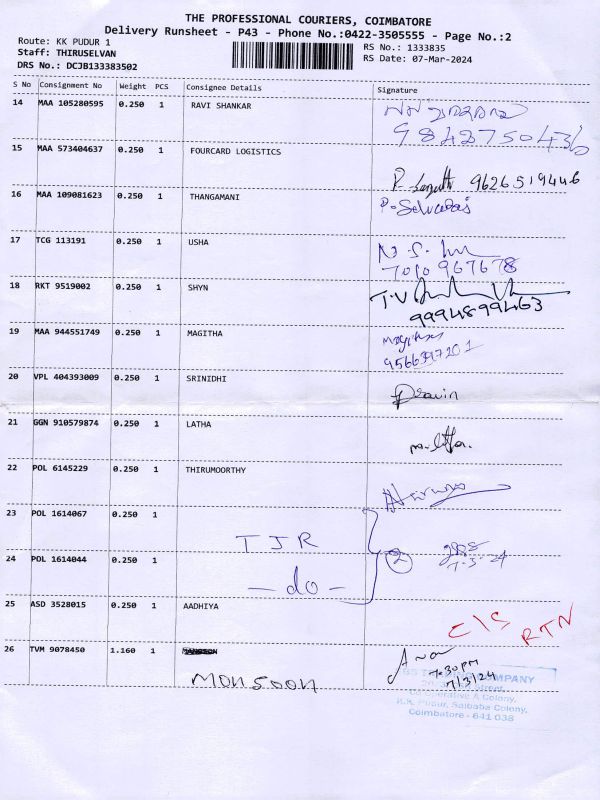 THE PROFESSIONAL COURIERS, COIMBATORE
Delivery Runsheet - P43 - Phone No.:0422-3505555 - Page No.:2
Route: KK PUDUR 1
Staff: THIRUSELVAN
DRS No.: DCJB133383502
RS No.: 1333835
RS Date: 07-Mar-2024
S No Consignment No Weight PCS Consignee Details Signature
14 MAA 105280595 0.250 1 RAVI SHANKAR
9842750436
15 MAA 573404637 0.250 1 FOURCARD LOGISTICS
9626519446
16 MAA 109081623 0.250 1 THANGAMANI
P. Selvaraj
17 TCG 113191 0.250 1 USHA
7010 967678
18 RKT 9519002 0.250 1 SHYN
T.V
9994899463
19 MAA 944551749 0.250 1 MAGITHA
9566397201
20 VPL 404393009 0.250 1 SRINIDHI
Pravin
21 GGN 910579874 0.250 1 LATHA
22 POL 6145229 0.250 1 THIRUMOORTHY
23 POL 1614067 0.250 1
TJR
24 POL 1614044 0.250 1
-do-
2
7-3-24
25 ASD 3528015 0.250 1 AADHIYA
C/S RTN
26 TVM 9078450 1.160 1
monsoon
7.30 PM
7/3/24
COMPANY
Street,
Cooperative A Colony,
K.K. Pudur, Saibaba Colony,
Coimbatore - 641 038